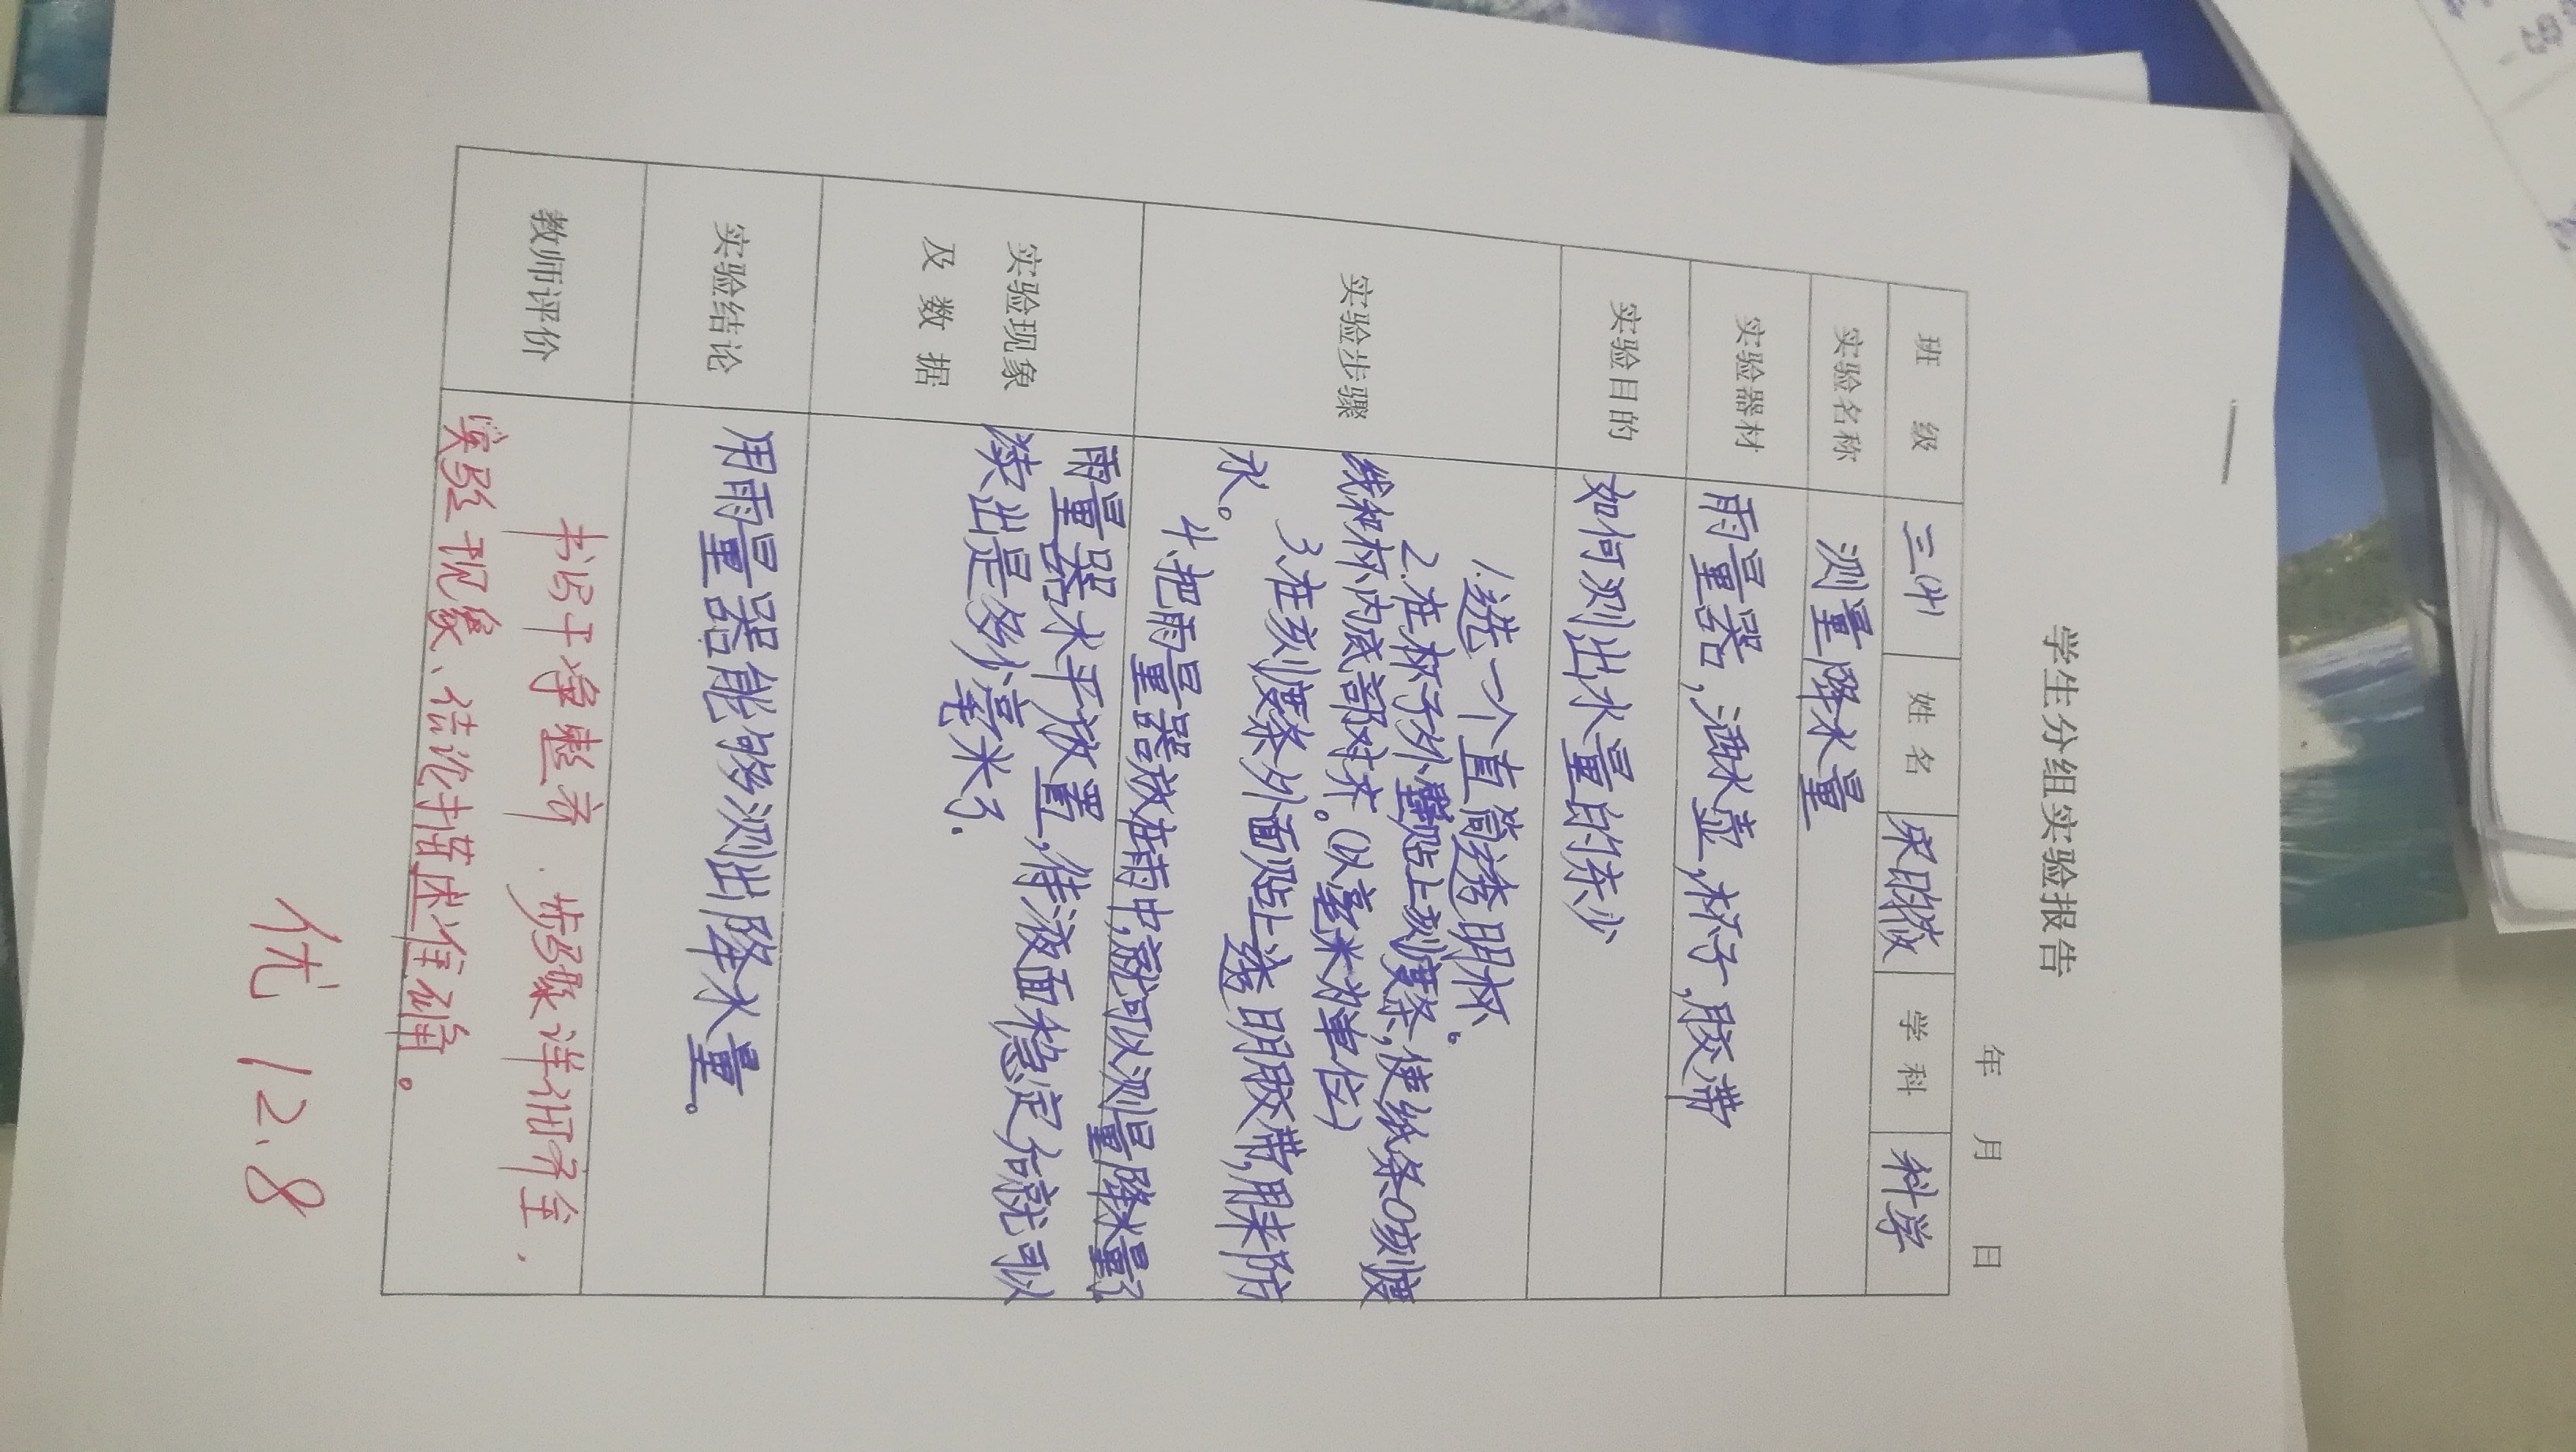 学生分组实验报告
年 月 日
班 级 三(4) 姓 名 学 科 科学
实验名称 测量降水量
实验器材 雨量器,洒水壶,杯子,胶带
实验目的 如何测出水量的多少
实验步骤
1.选一个直筒透明杯。
2.在杯子外壁贴上刻度条,使纸条0刻度
线和杯内底部对齐。(以毫米为单位)
3.在刻度条外面贴上透明胶带,用来防
水。
4.把雨量器放在雨中,就可以测量降水量了
实验现象
及 数 据
雨量器水平放置,待液面稳定后就可以
读出是多少毫米了.
实验结论 用雨量器能够测出降水量。
教师评价
书写干净整齐.步骤详细齐全.
实验现象、结论描述准确。
优 12.8